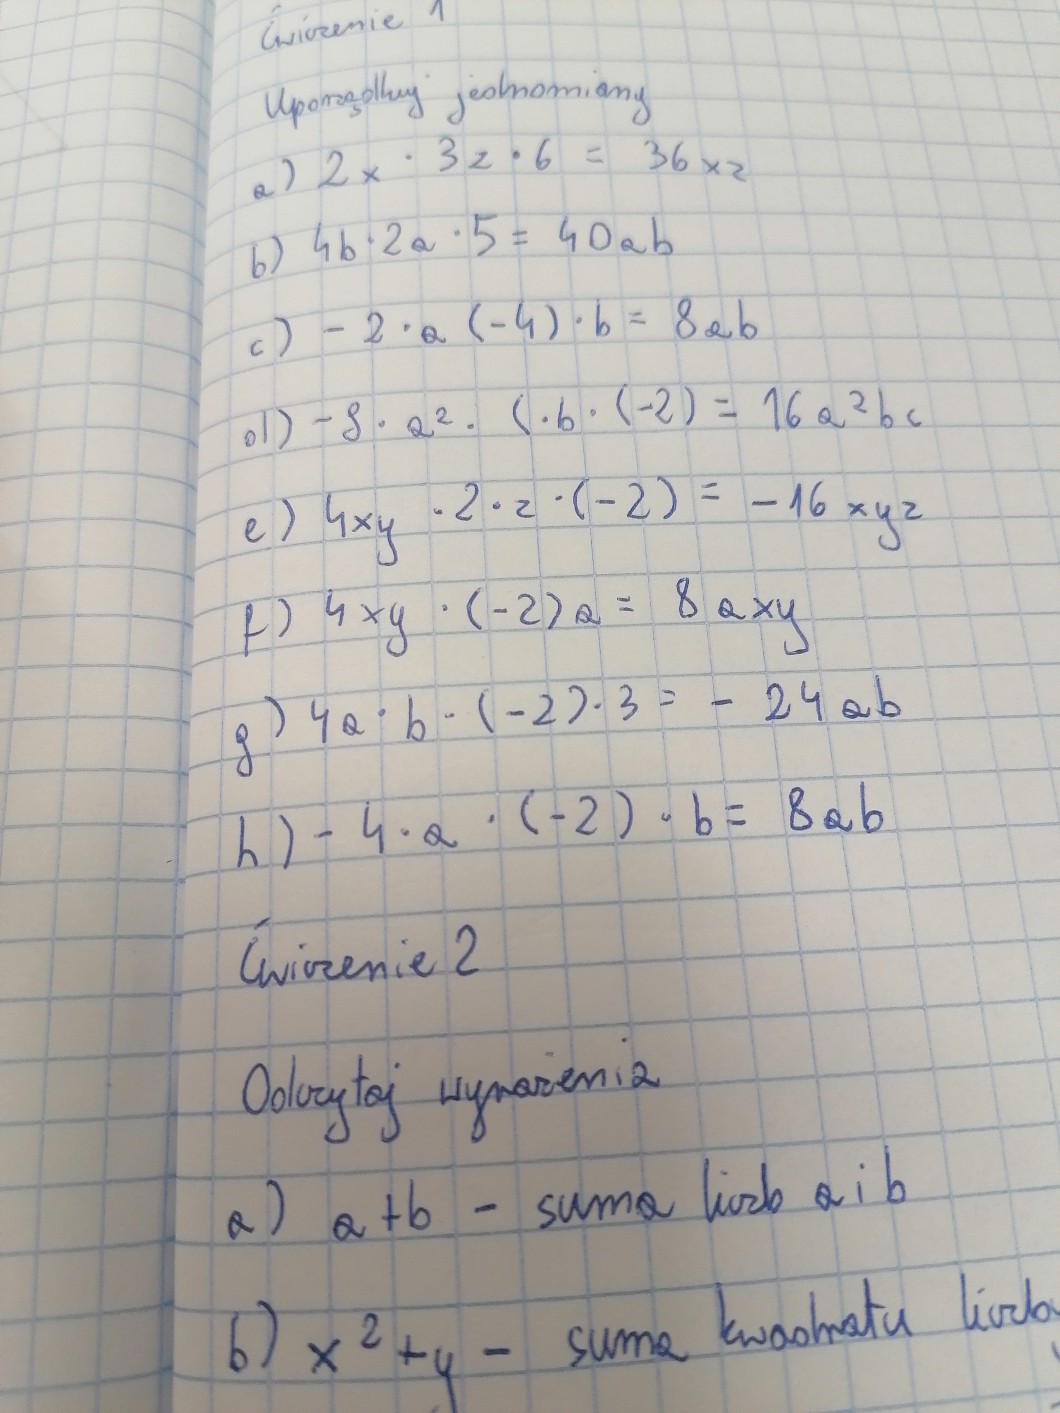 Ćwiczenie 1
Uporządkuj jednomiany
a) 2x · 3z · 6 = 36xz
b) 4b · 2a · 5 = 40ab
c) - 2 · a (-4) · b = 8ab
d) -8 · a² · c · b · (-2) = 16a²bc
e) 4xy · 2 · z · (-2) = -16xyz
f) 4xy · (-2)a = 8axy
g) 4a · b · (-2) · 3 = - 24ab
h) - 4 · a · (-2) · b = 8ab
Ćwiczenie 2
Odczytaj wyrażenia
a) a+b - suma liczb a i b
b) x²+y - suma kwadratu liczby